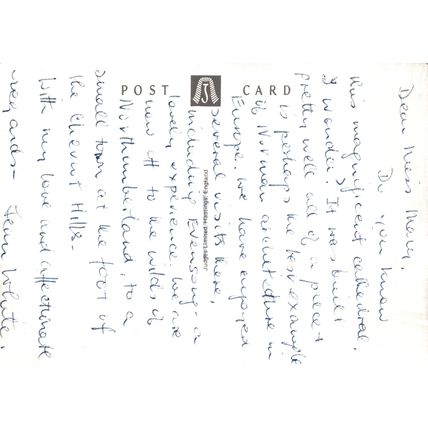 POST CARD
Judges Limited, Hastings, England
Dear Miss Mary,
Do you know
this magnificent cathedral,
I wonder? It was built
pretty well all of a piece &
is perhaps the best example
of Norman architecture in
Europe. We have enjoyed
several visits here,
including Evensong - a
lovely experience. We are
now off to the wilds of
Northumberland, to a
small town at the foot of
the Cheviot Hills.
With my love and affectionate
regards - Jean White.